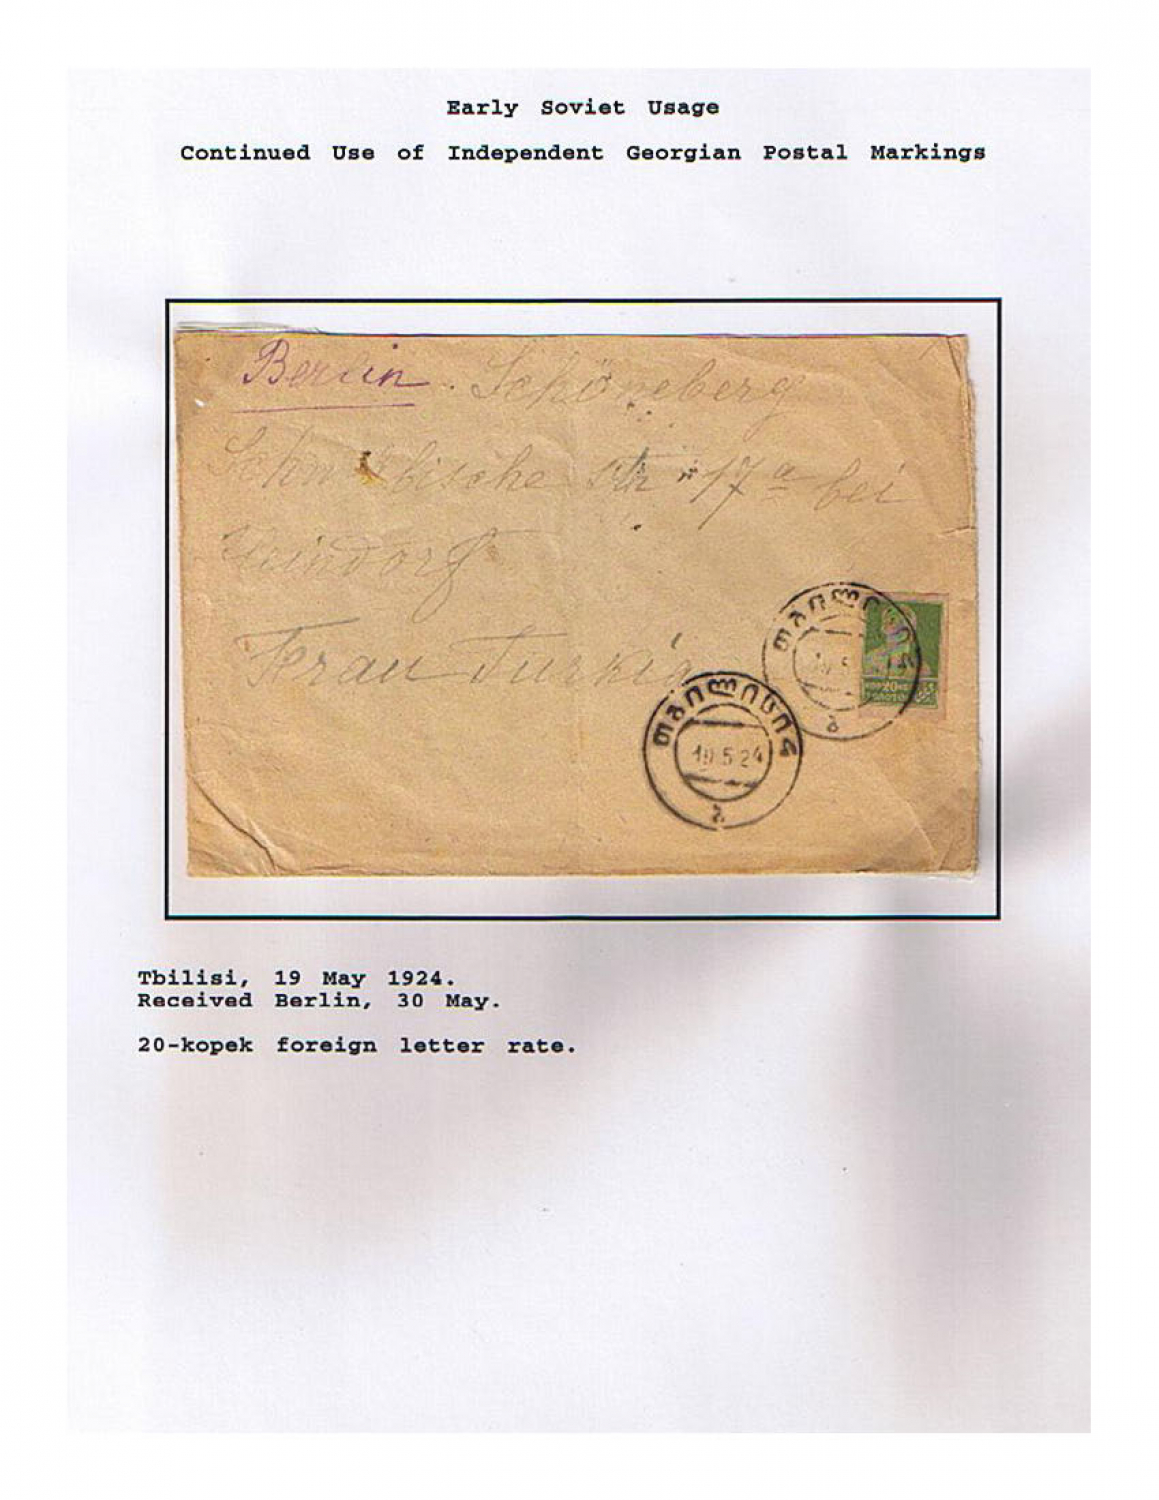 Early Soviet Usage
Continued Use of Independent Georgian Postal Markings
Berlin. Schöneberg
Schwäbische str 17 a bei
Frau Turkia
ტფილისი
კოп 20 коп
ЗОЛОТОМ
ტფილისი
19 5 24
Tbilisi, 19 May 1924.
Received Berlin, 30 May.
20-kopek foreign letter rate.